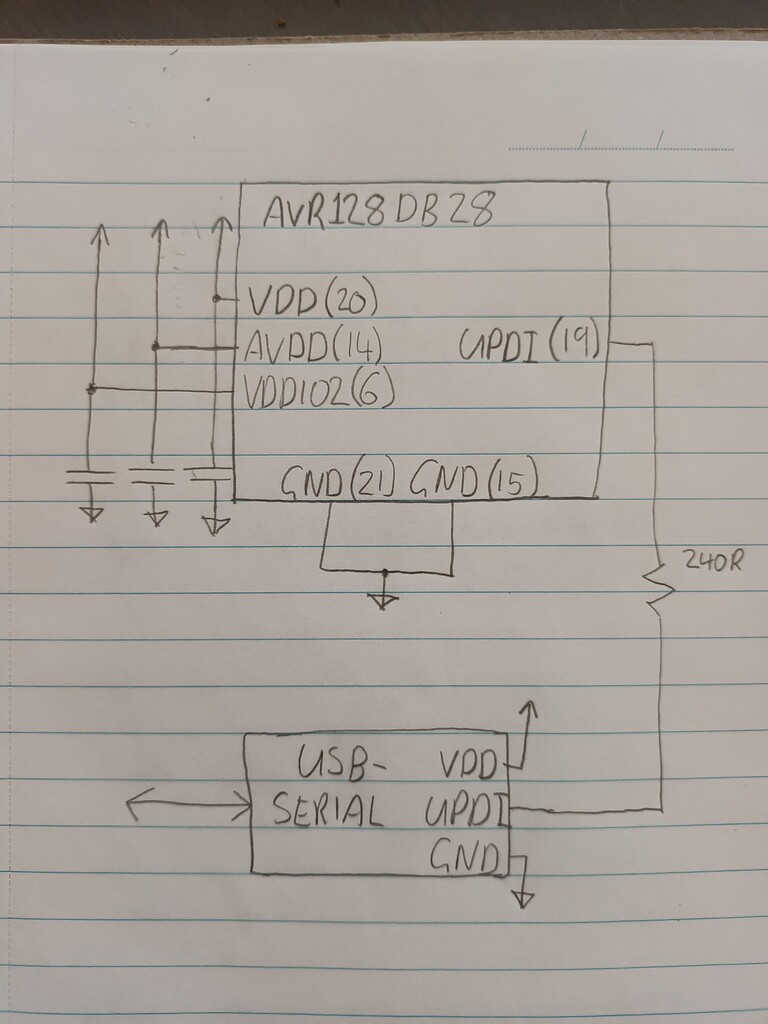 AVR128DB28
VDD(20)
AVDD(14) UPDI(19)
VDDIO2(6)
GND(21) GND(15)
240R
USB- VDD
SERIAL UPDI
GND